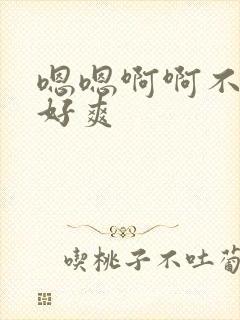 嗯嗯啊啊不
好爽
喫桃子不吐葡